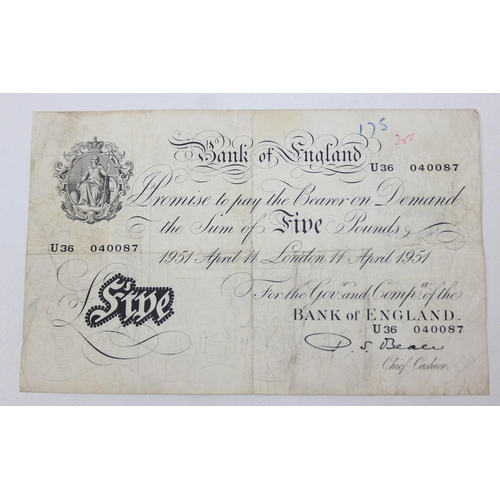 175
Bank of England
U36 040087
I Promise to pay the Bearer on Demand
the Sum of Five Pounds
U36 040087
1951 April 11 London 11 April 1951
For the Govr. and Compa. of the
Five
BANK of ENGLAND.
U36 040087
P. S. Beale
Chief Cashier.